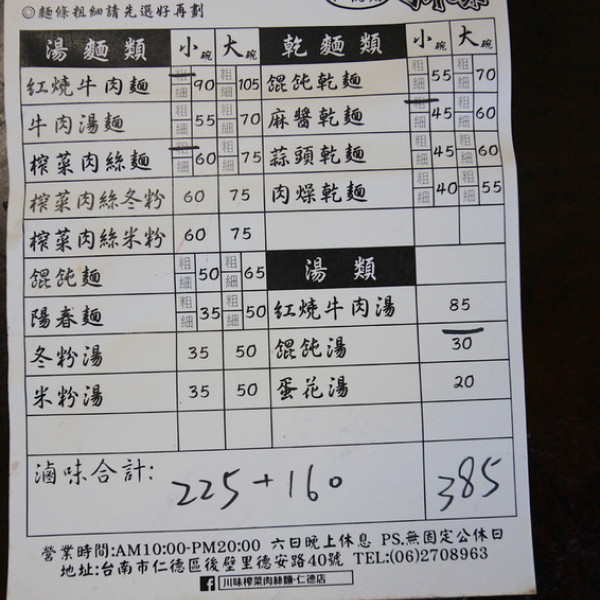 ◎麵條粗細請先選好再劃
湯麵類 小碗 大碗 乾麵類 小碗 大碗
紅燒牛肉麵 粗細 90 粗細 105 餛飩乾麵 粗細 55 粗細 70
牛肉湯麵 粗細 55 粗細 70 麻醬乾麵 粗細 45 粗細 60
榨菜肉絲麵 粗細 60 粗細 75 蒜頭乾麵 粗細 45 粗細 60
榨菜肉絲冬粉 60 75 肉燥乾麵 粗細 40 粗細 55
榨菜肉絲米粉 60 75
餛飩麵 粗細 50 粗細 65 湯類
陽春麵 粗細 35 粗細 50 紅燒牛肉湯 85
冬粉湯 35 50 餛飩湯 30
米粉湯 35 50 蛋花湯 20
滷味合計: 225+160 385
營業時間:AM10:00-PM20:00 六日晚上休息 PS.無固定公休日
地址:台南市仁德區後壁里德安路40號 TEL:(06)2708963
川味榨菜肉絲麵-仁德店